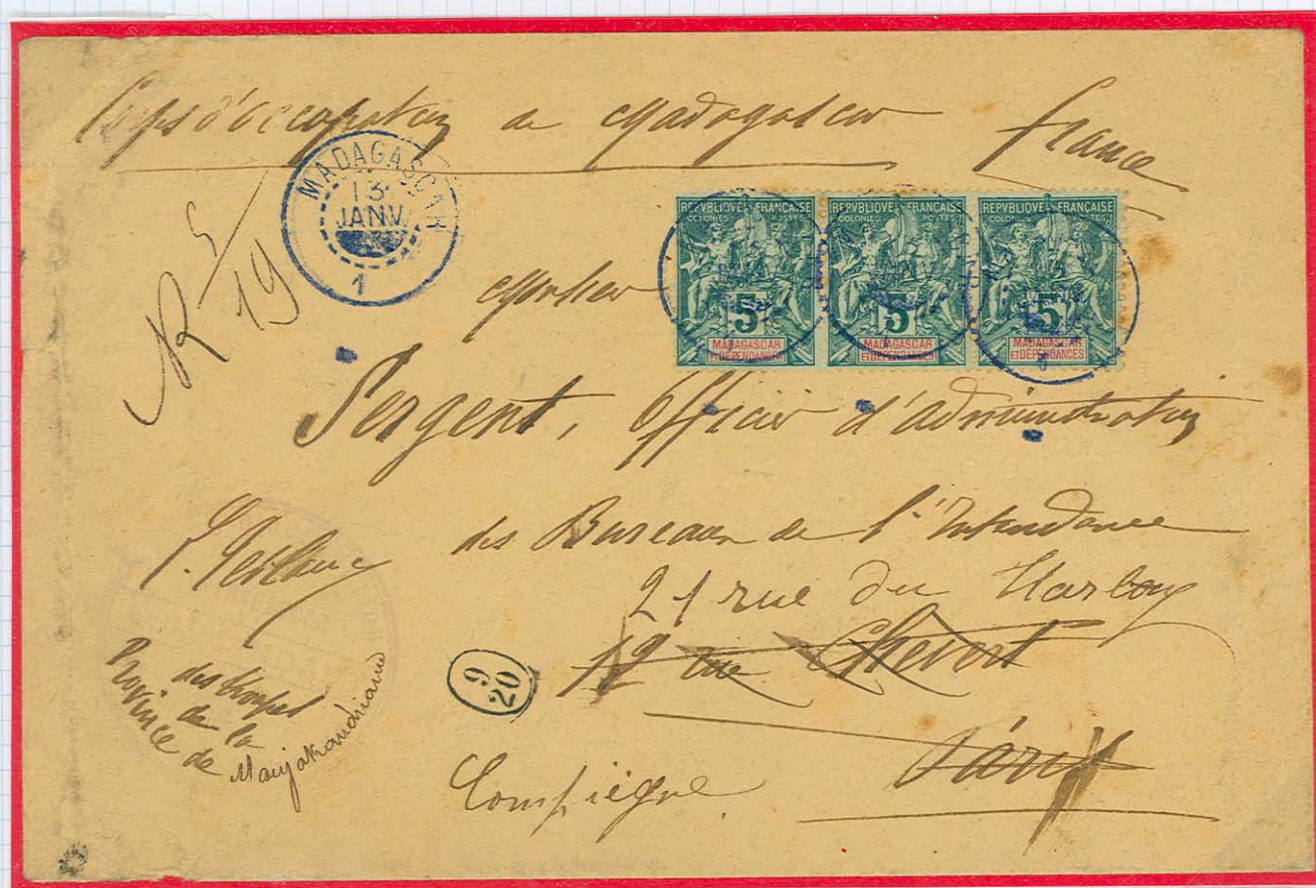 Corps d'occupation de Madagascar France
R 5/19
MADAGASCAR
13
JANV.
1
REPVBLIQVE FRANÇAISE
COLONIES POSTES
5
MADAGASCAR
ET DÉPENDANCES
REPVBLIQVE FRANÇAISE
COLONIES POSTES
5
MADAGASCAR
ET DÉPENDANCES
REPVBLIQVE FRANÇAISE
COLONIES POSTES
5
MADAGASCAR
ET DÉPENDANCES
Monsieur
Sergent, Officier d'administration
des Bureaux de l'Intendance
21 rue du Harlay
12 rue Chevert
Paris
Compiègne
9
20
des troupes
de la
Province de Manjakandriana